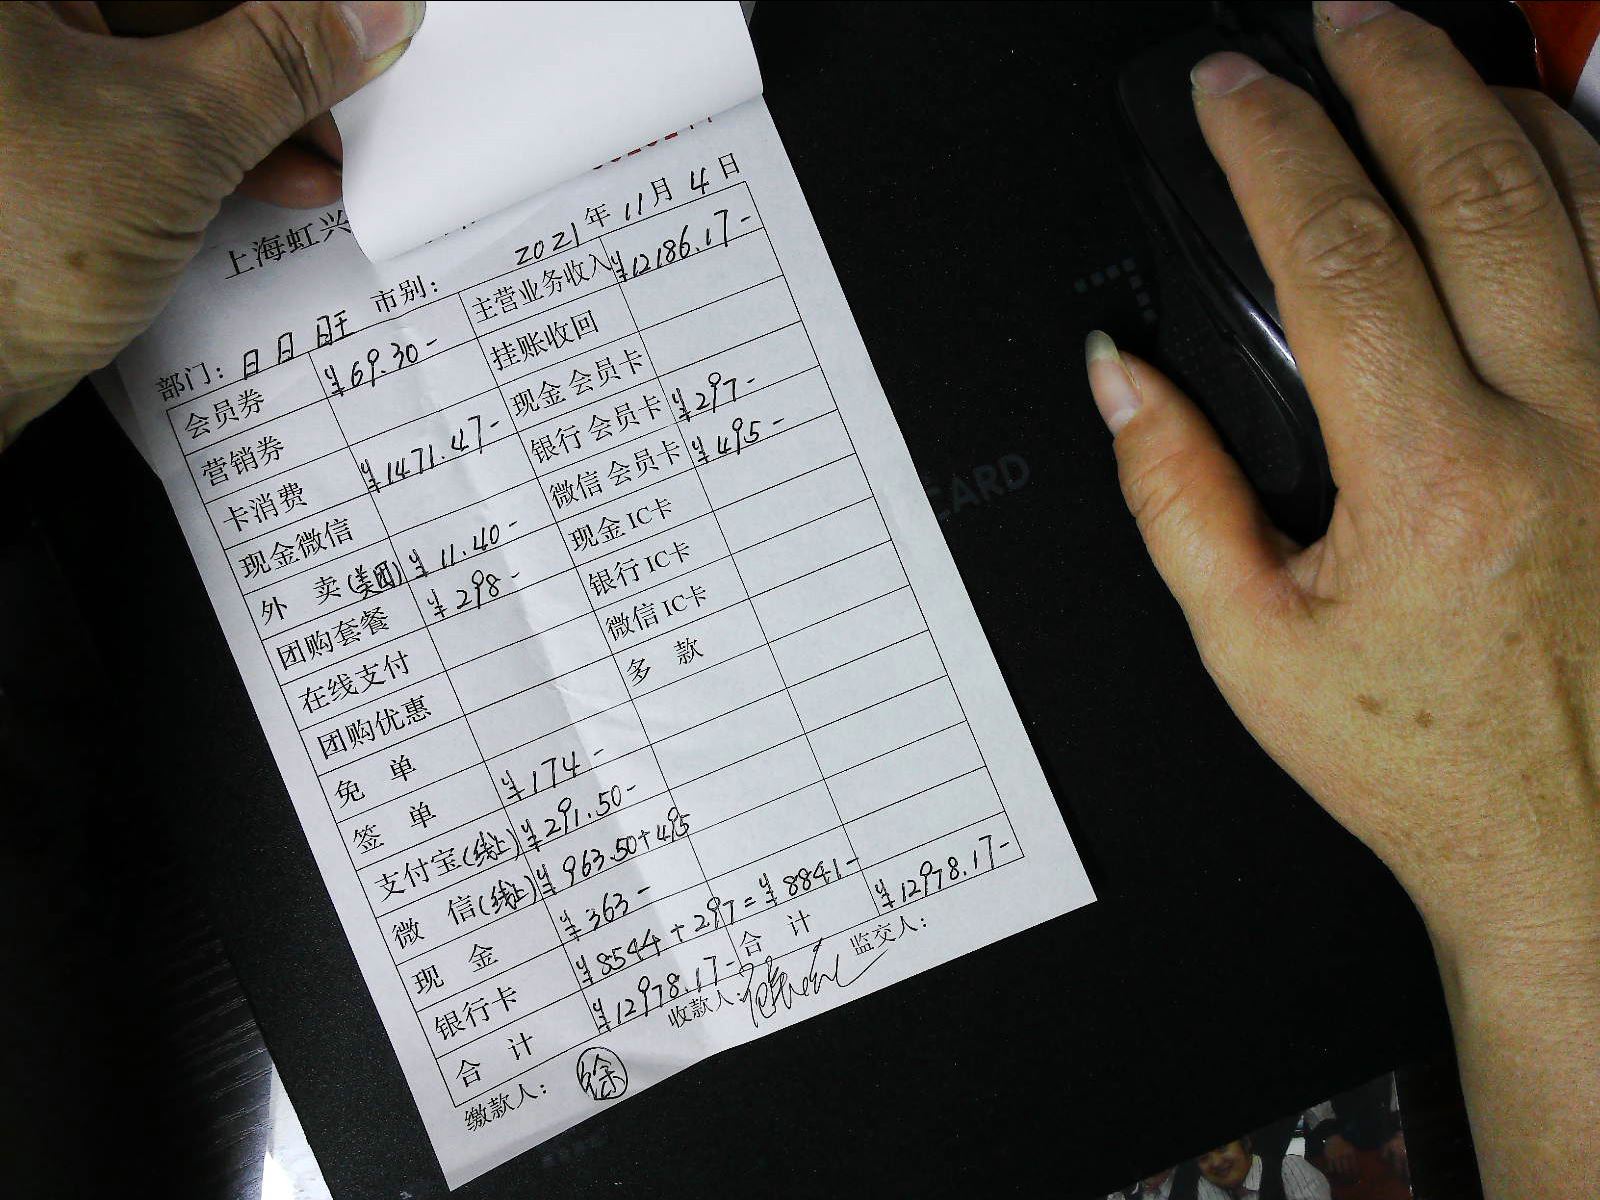 上海虹兴
2021年11月4日
部门：日日旺 市别：
会员券 ¥69.30- 主营业务收入 ¥12186.17-
营销券 挂账收回
卡消费 ¥1471.47- 现金会员卡
现金微信 银行会员卡 ¥297-
外 卖(美团) ¥11.40- 微信会员卡 ¥495-
团购套餐 ¥298- 现金IC卡
在线支付 银行IC卡
团购优惠 微信IC卡
免 单 多 款
签 单 ¥174-
支付宝(线上) ¥291.50-
微 信(线上) ¥963.50+495
现 金 ¥363-
银行卡 ¥8544+297=¥8841-
合 计 ¥12978.17- 合 计 ¥12978.17-
缴款人：徐 收款人： 监交人：
CARD